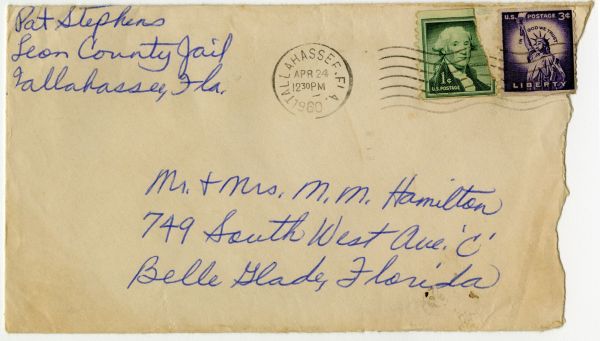 Pat Stephens
Leon County Jail
Tallahassee, Fla.
TALLAHASSEE, FLA.
APR 24
12 30 PM
1960
1¢
U.S. POSTAGE
U.S. POSTAGE 3¢
IN GOD WE TRUST
LIBERTY
Mr. & Mrs. M. M. Hamilton
749 South West Ave. 'C'
Belle Glade, Florida